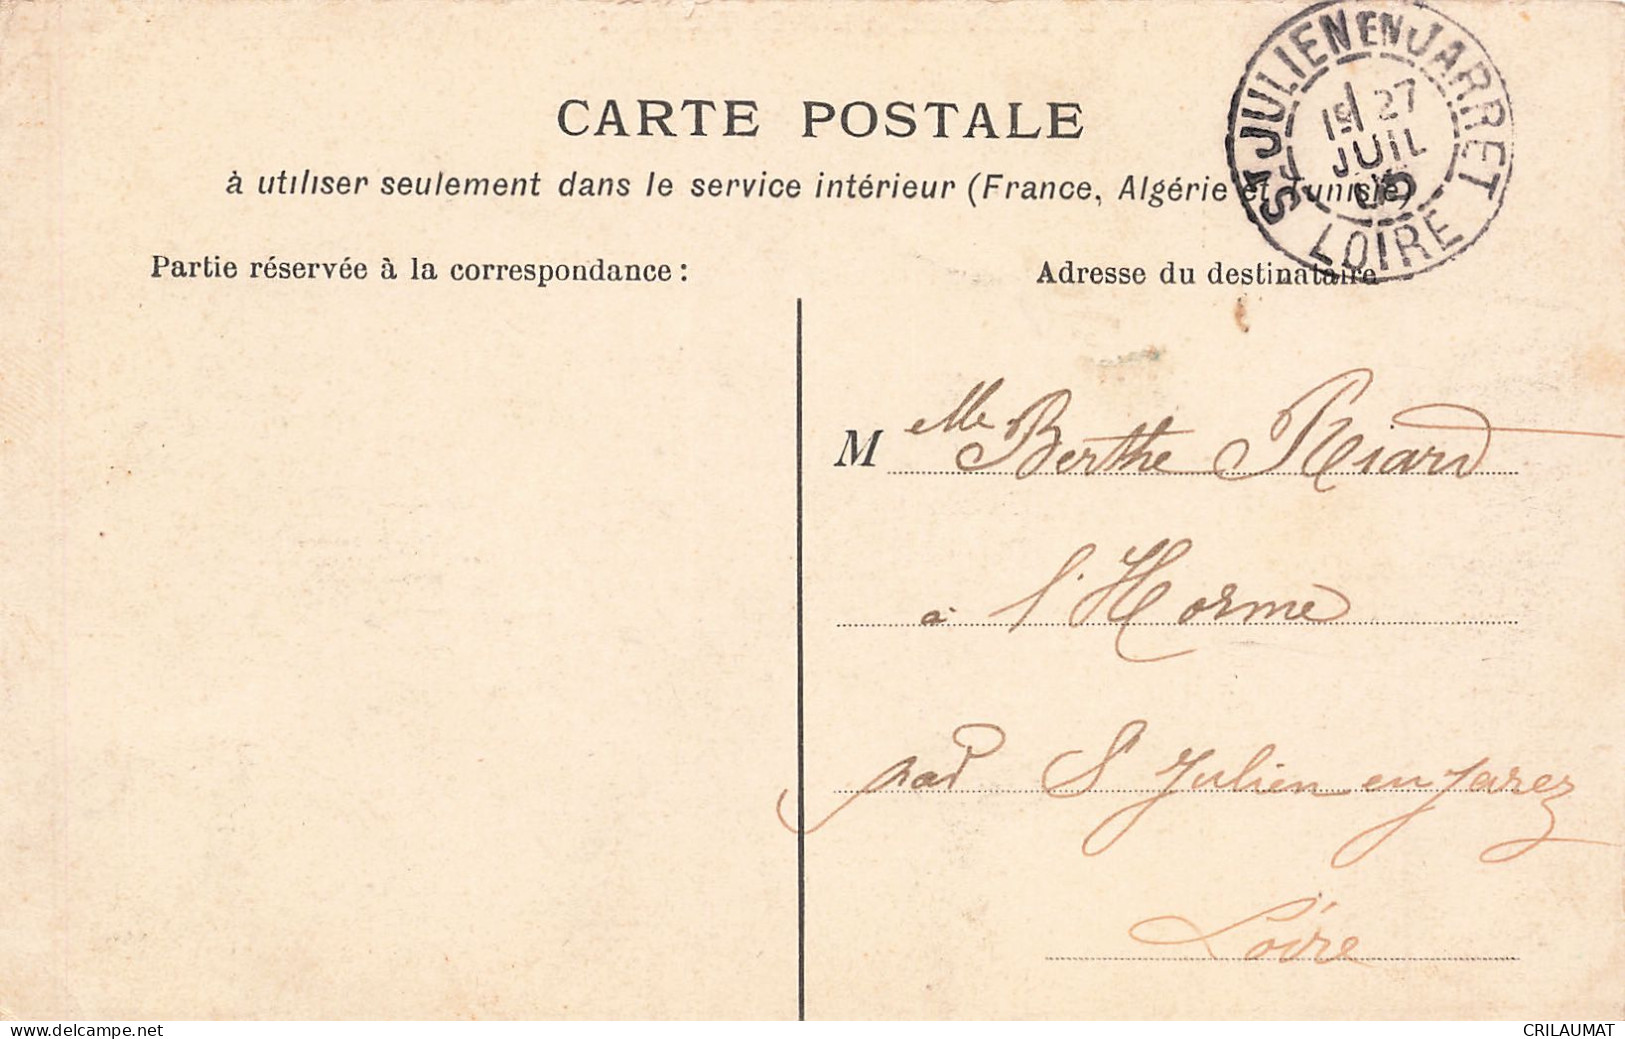 CARTE POSTALE
à utiliser seulement dans le service intérieur (France, Algérie et Tunisie)
Partie réservée à la correspondance :
Adresse du destinataire
ST JULIEN EN JARRET
27
JUIL
LOIRE
M elle Berthe Riard
à l'Horme
par St Julien en Jarez
Loire
www.delcampe.net
CRILAUMAT